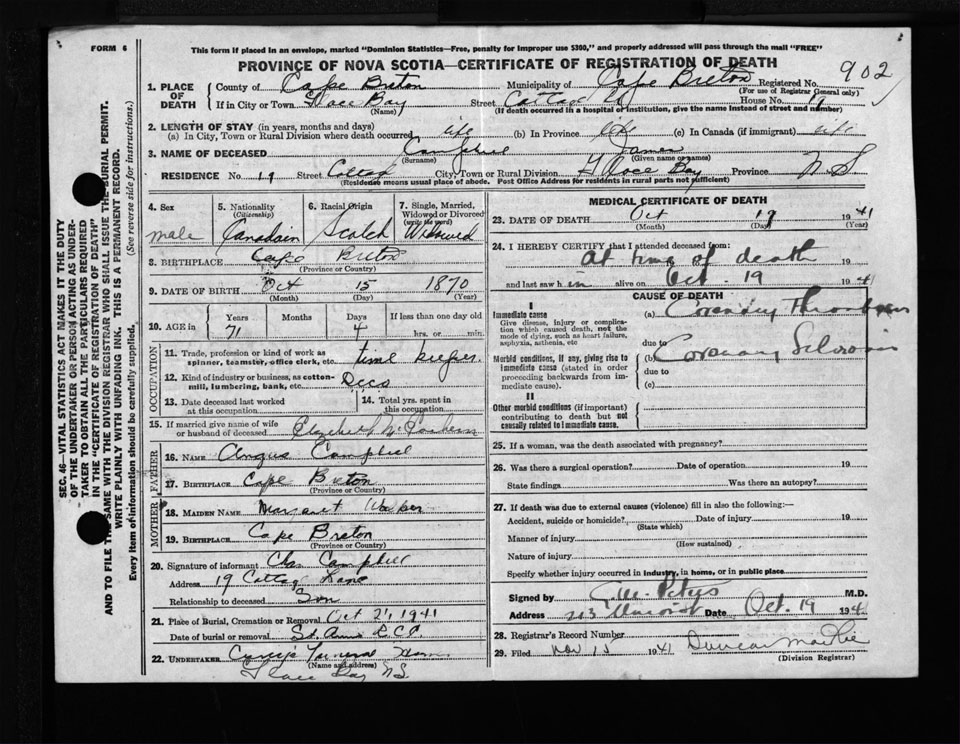 FORM 6
This form if placed in an envelope, marked "Dominion Statistics—Free, penalty for improper use $300," and properly addressed will pass through the mail "FREE"
PROVINCE OF NOVA SCOTIA—CERTIFICATE OF REGISTRATION OF DEATH
902
SEC. 46—VITAL STATISTICS ACT MAKES IT THE DUTY
OF THE UNDERTAKER OR PERSON ACTING AS UNDER-
TAKER TO OBTAIN ALL THE PARTICULARS REQUIRED
IN THE "CERTIFICATE OF REGISTRATION OF DEATH"
AND TO FILE THE SAME WITH THE DIVISION REGISTRAR WHO SHALL ISSUE THE BURIAL PERMIT.
WRITE PLAINLY WITH UNFADING INK. THIS IS A PERMANENT RECORD.
Every item of information should be carefully supplied. (See reverse side for instructions.)
1. PLACE OF DEATH
County of Cape Breton Municipality of Cape Breton Registered No.
(For use of Registrar General only)
If in City or Town Glace Bay Street House No. 19
(Name) (If death occurred in a hospital or institution, give the name instead of street and number)
2. LENGTH OF STAY (in years, months and days)
(a) In City, Town or Rural Division where death occurred life (b) In Province life (c) In Canada (if immigrant) life
3. NAME OF DECEASED Campbell James
(Surname) (Given name or names)
RESIDENCE No. 19 Street City, Town or Rural Division Glace Bay Province N S
(Residence means usual place of abode. Post Office Address for residents in rural parts not sufficient)
4. Sex
male
5. Nationality
(Citizenship)
Canadain
6. Racial Origin
Scotch
7. Single, Married, Widowed or Divorced
(write the word)
Widowed
8. BIRTHPLACE Cape Breton
(Province or Country)
9. DATE OF BIRTH Oct 15 1870
(Month) (Day) (Year)
10. AGE in Years Months Days If less than one day old
71 4 hrs. or min.
OCCUPATION
11. Trade, profession or kind of work as
spinner, teamster, office clerk, etc. time keeper
12. Kind of industry or business, as cotton-
mill, lumbering, bank, etc.
13. Date deceased last worked
at this occupation
14. Total yrs. spent in
this occupation
15. If married give name of wife
or husband of deceased Elizabeth
FATHER
16. NAME Angus Campbell
17. BIRTHPLACE Cape Breton
(Province or Country)
MOTHER
18. MAIDEN NAME Margaret
19. BIRTHPLACE Cape Breton
(Province or Country)
20. Signature of informant Campbell
Address 19 Cottage Lane
Relationship to deceased Son
21. Place of Burial, Cremation or Removal Oct 21, 1941
Date of burial or removal St. Anns
22. UNDERTAKER Funeral Home
(Name and address)
Glace Bay NS.
MEDICAL CERTIFICATE OF DEATH
23. DATE OF DEATH Oct 19 1941
(Month) (Day) (Year)
24. I HEREBY CERTIFY that I attended deceased from:
At time of death 19
and last saw him alive on Oct. 19 1941
CAUSE OF DEATH
I
Immediate cause
Give disease, injury or complica-
tion which caused death, not the
mode of dying, such as heart failure,
asphyxia, asthenia, etc
(a) Coronary Thrombosis
due to
Morbid conditions, if any, giving rise to
immediate cause (stated in order
proceeding backwards from im-
mediate cause).
(b) Coronary Sclerosis
due to
(c)
II
Other morbid conditions (if important)
contributing to death but not
causally related to immediate cause.
25. If a woman, was the death associated with pregnancy?
26. Was there a surgical operation? Date of operation 19
State findings Was there an autopsy?
27. If death was due to external causes (violence) fill in also the following:—
Accident, suicide or homicide? Date of injury 19
(State which)
Manner of injury
(How sustained)
Nature of injury
Specify whether injury occurred in industry, in home, or in public place
Signed by M.D.
Address Date Oct. 19 194
28. Registrar's Record Number
29. Filed Nov 15 1941 Duncan
(Division Registrar)